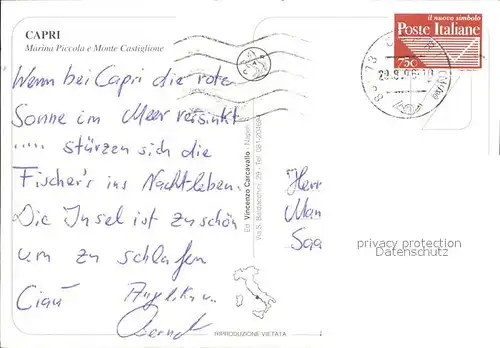 CAPRI
Marina Piccola e Monte Castiglione
Wenn bei Capri die rote
Sonne im Meer versinkt
..... stürzen sich die
Fischer's ins Nachtleben.
Die Insel ist zu schön
um zu schlafen
Ciau Angelika u.
Bernd
il nuovo simbolo
Poste Italiane
750
CAPRI
Ed. Vincenzo Carcavallo - Napoli
Herr
Man
Saa
privacy protection
Datenschutz
RIPRODUZIONE VIETATA